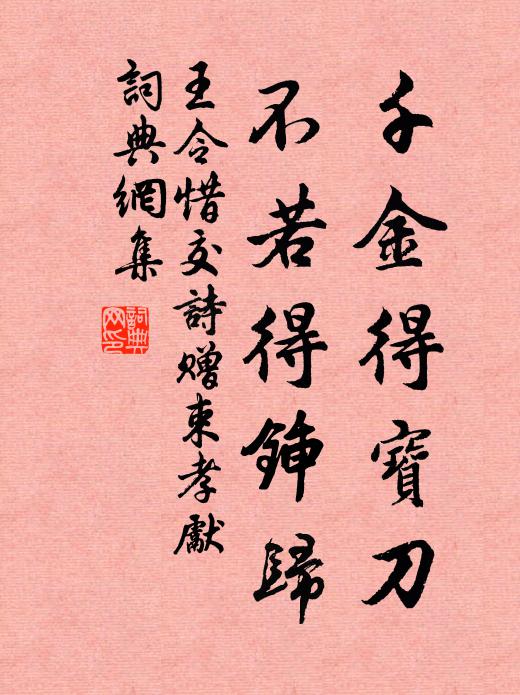 千金得寶刀
不若得鉮歸
王令惜交詩贈束孝獻
詞典網集
詞典
网印